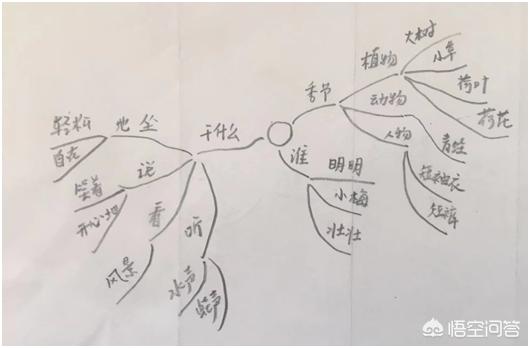 大树
植物
小草
荷叶
荷花
季节
动物
青蛙
人物
短袖衣
短裤
谁
明明
小梅
壮壮
干什么
坐
轻松
自在
说
笑着
开心地
看
风景
听
水声
蛙声
悟空问答